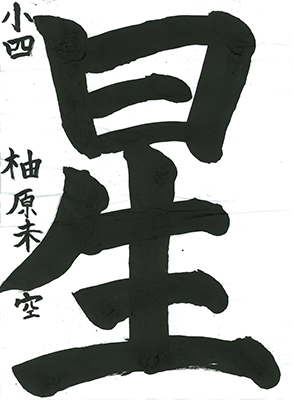 星
小四
柚原未空